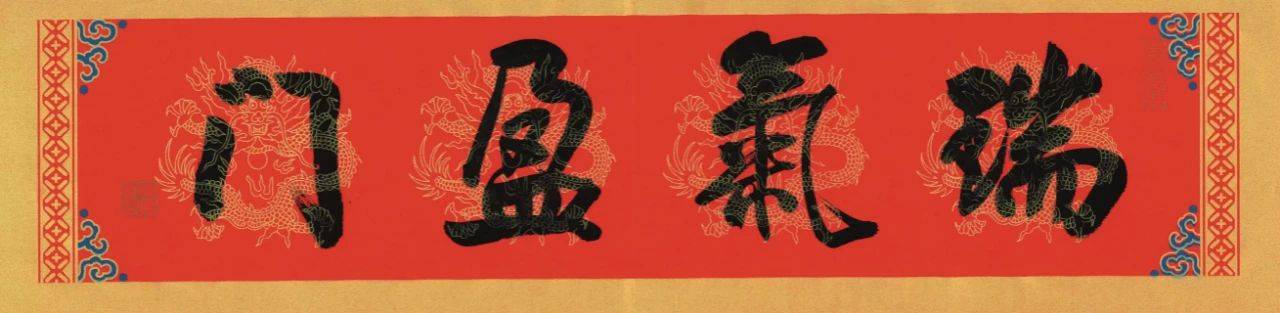 瑞氣盈门